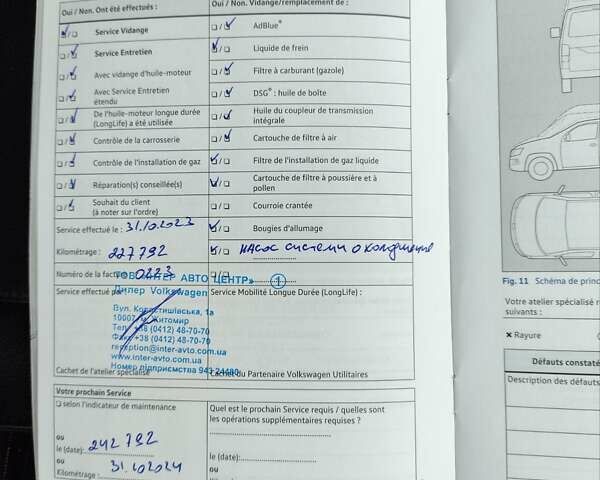 Oui / Non. Ont été effectués :
☑/☐ Service Vidange
☐/☑ Service Entretien
☐/☑ Avec vidange d'huile-moteur
☐/☑ Avec Service Entretien étendu
☐/☑ De l'huile-moteur longue durée
(LongLife) a été utilisée
☐/☑ Contrôle de la carrosserie
☐/☑ Contrôle de l'installation de gaz
☐/☑ Réparation(s) conseillée(s)
☐/☑ Souhait du client
(à noter sur l'ordre)
Service effectué le : 31.10.2023
Kilométrage : 227792
Numéro de la facture 0223
Service effectué par
Oui / Non. Vidange/remplacement de :
☐/☑ AdBlue®
☑/☐ Liquide de frein
☐/☑ Filtre à carburant (gazole)
☐/☑ DSG® : huile de boîte
☐/☑ Huile du coupleur de transmission
intégrale
☐/☑ Cartouche de filtre à air
☑/☐ Filtre de l'installation de gaz liquide
☑/☐ Cartouche de filtre à poussière et à
pollen
☐/☐ Courroie crantée
☑/☐ Bougies d'allumage
☑/☐ насос системи охолодження
☐/☐
Service Mobilité Longue Durée (LongLife) :
ТОВ «ІНТЕР АВТО ЦЕНТР» 1
Дилер Volkswagen
Вул. Коростишівська, 1а
10007, м. Житомир
Тел. +38 (0412) 48-70-70
Факс +38 (0412) 48-70-70
reception@inter-avto.com.ua
www.inter-avto.com.ua
Номер підприємства 943 24480
Cachet de l'atelier spécialisé
Cachet du Partenaire Volkswagen Utilitaires
Votre prochain Service
☐ selon l'indicateur de maintenance
ou
le (date): 242 792
ou
Kilométrage : 31.10.2024
Quel est le prochain Service requis / quelles sont
les opérations supplémentaires requises ?
le (date):
ou
Fig. 11 Schéma de princ
Votre atelier spécialisé r
suivants :
× Rayure
Défauts constaté
Description des défauts